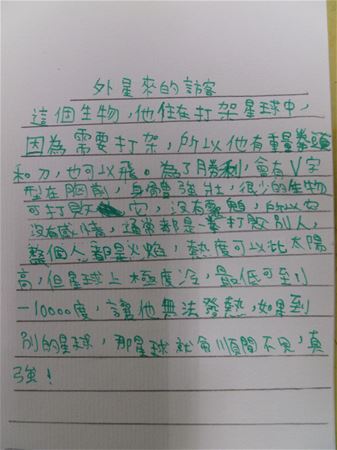 外星來的訪客
這個生物，他住在打架星球中，
因為需要打架，所以他有重量拳頭
和刀，也可以飛。為了勝利，會有V字
型在胸前，身體強壯，很少的生物
可打敗它，沒有靈魂，所以它
沒有感情，通常都是要打敗別人，
整個人都是火焰，熱度可以比太陽
高，但星球上極度冷，最低可到
-10000度，讓他無法發熱，如果到
別的星球，那星球就會順間不見，真
強！